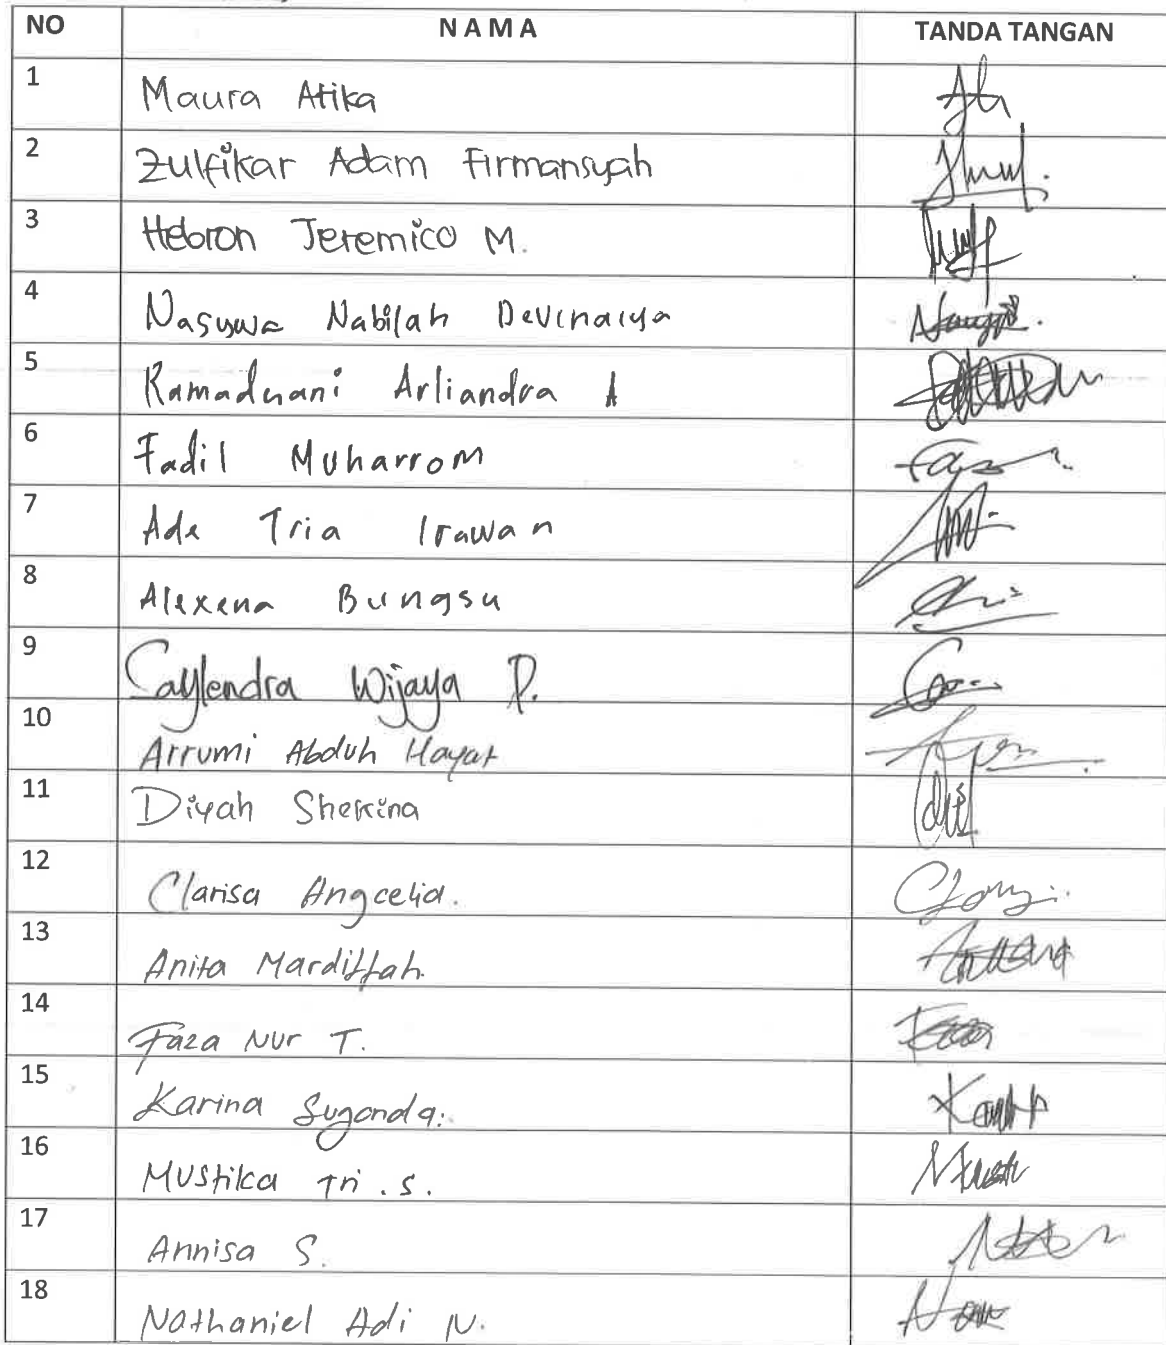 NO NAMA TANDA TANGAN
1 Maura Atika
2 Zulfikar Adam Firmansyah
3 Hebron Jeremico M.
4 Nasywa Nabilah Devinaiya
5 Ramadhani Arliandra A
6 Fadil Muharrom
7 Ade Tria Irawan
8 Alexena Bungsu
9 Saylendra Wijaya P.
10 Arrumi Abduh Hayat
11 Diyah Shekina
12 Clarisa Angcelia.
13 Anita Mardiffah.
14 Faza Nur T.
15 Karina Suganda.
16 Mustika Tri . S.
17 Annisa S.
18 Nathaniel Adi N.